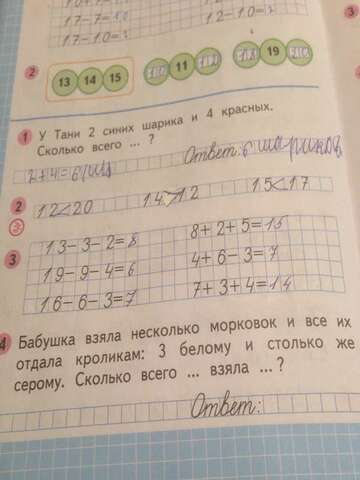 17-7=10
12-10=2
17-10=7
3
2
13 14 15
11
19
1 У Тани 2 синих шарика и 4 красных.
Сколько всего ... ?
Ответ: 6 шариков
2+4=6(ш)
2 12<20 14>12 15<17
3 13-3-2=8 8+2+5=15
19-9-4=6 4+6-3=7
16-6-3=7 7+3+4=14
4 Бабушка взяла несколько морковок и все их
отдала кроликам: 3 белому и столько же
серому. Сколько всего ... взяла ... ?
Ответ: